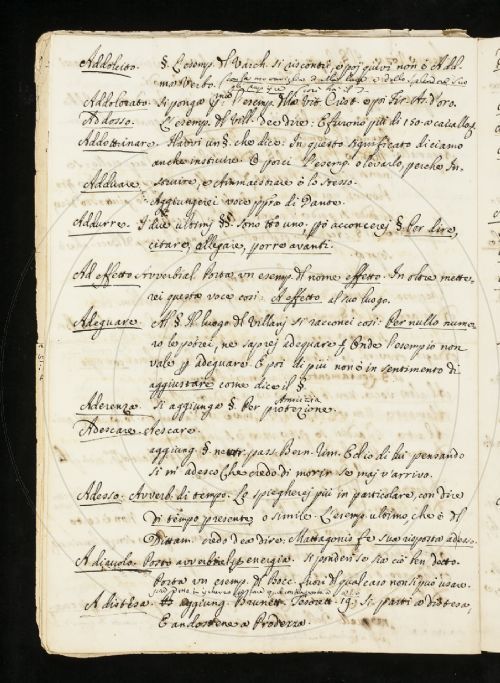 Addolcito. §. L'esemp. dl Varch. si riscontri, e poi quivi non è Add.
ma Verbo.
Addolorato. si ponga l'esemp. Vit. Crist. e poi Fir. As. d'oro.
Addosso. L'esemp. dl Vill. dee dire: E furono più di 150 a cavallo
Addottrinare. Havvi un §. che dice: In questo significato diciamo
anche instruire. E poi l'esemp. o levarlo, perche In-
struire, e Ammaestrare è lo stesso.
Adduare. Aggiungerei voce di Dante.
Addurre. I due ultimi §§. sono tt'o uno, acconcerej §. Per dire,
citare, allegare, porre avanti.
Ad effetto Avverbial. Porta un esemp. dl nome effetto. In oltre mette-
rei questa voce così: A effetto al suo luogo.
Adeguare. Al §. Il luogo dl Villanj si racconci così: Per nullo nume-
ro lo potrei, ne saprej adequare. Onde l'esempio non
vale p adeguare. E poi di più non è in sentimento di
aggiustare come dice il §.
Aderenza. Si aggiunga §. Per Amicizia protezione.
Adescare. Aescare.
aggiung. §. neutr. pass. Bern. rim. E dio di lui pensando
si m'adesco, Che credo di morir se maj v'arrivo.
Adesso. Avverb. di tempo. Lo spiegherej più in particolare, con dire
Di tempo presente, o simile. L'esemp. ultimo, che è dl
Dittam. credo dea dire: Mattagonio fe sua risposta adesso.
A diavolo. Posto avverbialm. energia. si ponderi se sia cio ben detto.
Porta un esemp. dl Bocc. fuor dl qual caso non si può usare.
A distesa. aggiung. Brunett. Tesorett. 19. Si partì a distesa,
E andossene a Prodezza.